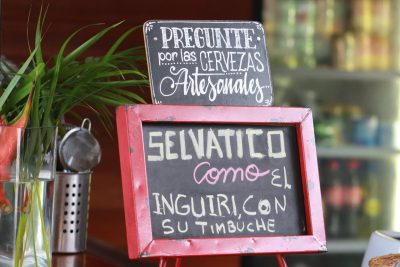 PREGUNTE
por las CERVEZAS
Artesanales
SELVATICO
como EL
INGUIRI, CON
SU TIMBUCHE